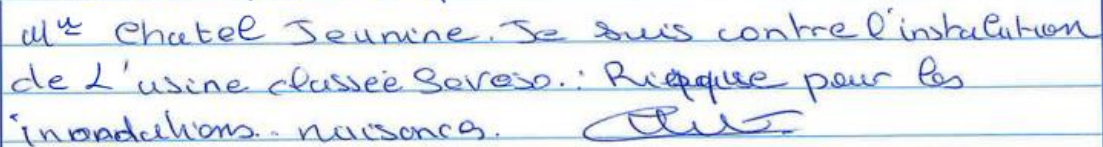 Mme Chatel Jeunine. Je suis contre l'instalution
de L'usine classée Seveso.: Risque pour les
inondations.. naisances.